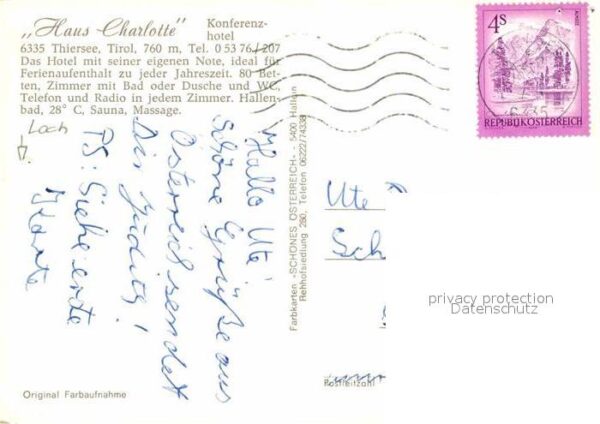 „Haus Charlotte"
Konferenz-
hotel
6335 Thiersee, Tirol, 760 m, Tel. 0 53 76 / 207
Das Hotel mit seiner eigenen Note, ideal für
Ferienaufenthalt zu jeder Jahreszeit. 80 Bet-
ten, Zimmer mit Bad oder Dusche und WC,
Telefon und Radio in jedem Zimmer. Hallen-
bad, 28° C, Sauna, Massage.
Loch
Hallo Ute
Schöne Grüße aus
Österreich sendet
Dir Judith!
PS: Siehe erste
Karte
Farbkarten „SCHÖNES ÖSTERREICH" - 5400 Hallein
Rehhofsiedlung 250, Telefon 06222/74338
4 S
REPUBLIK ÖSTERREICH
Ute
Sch
privacy protection
Datenschutz
Postleitzahl
Original Farbaufnahme